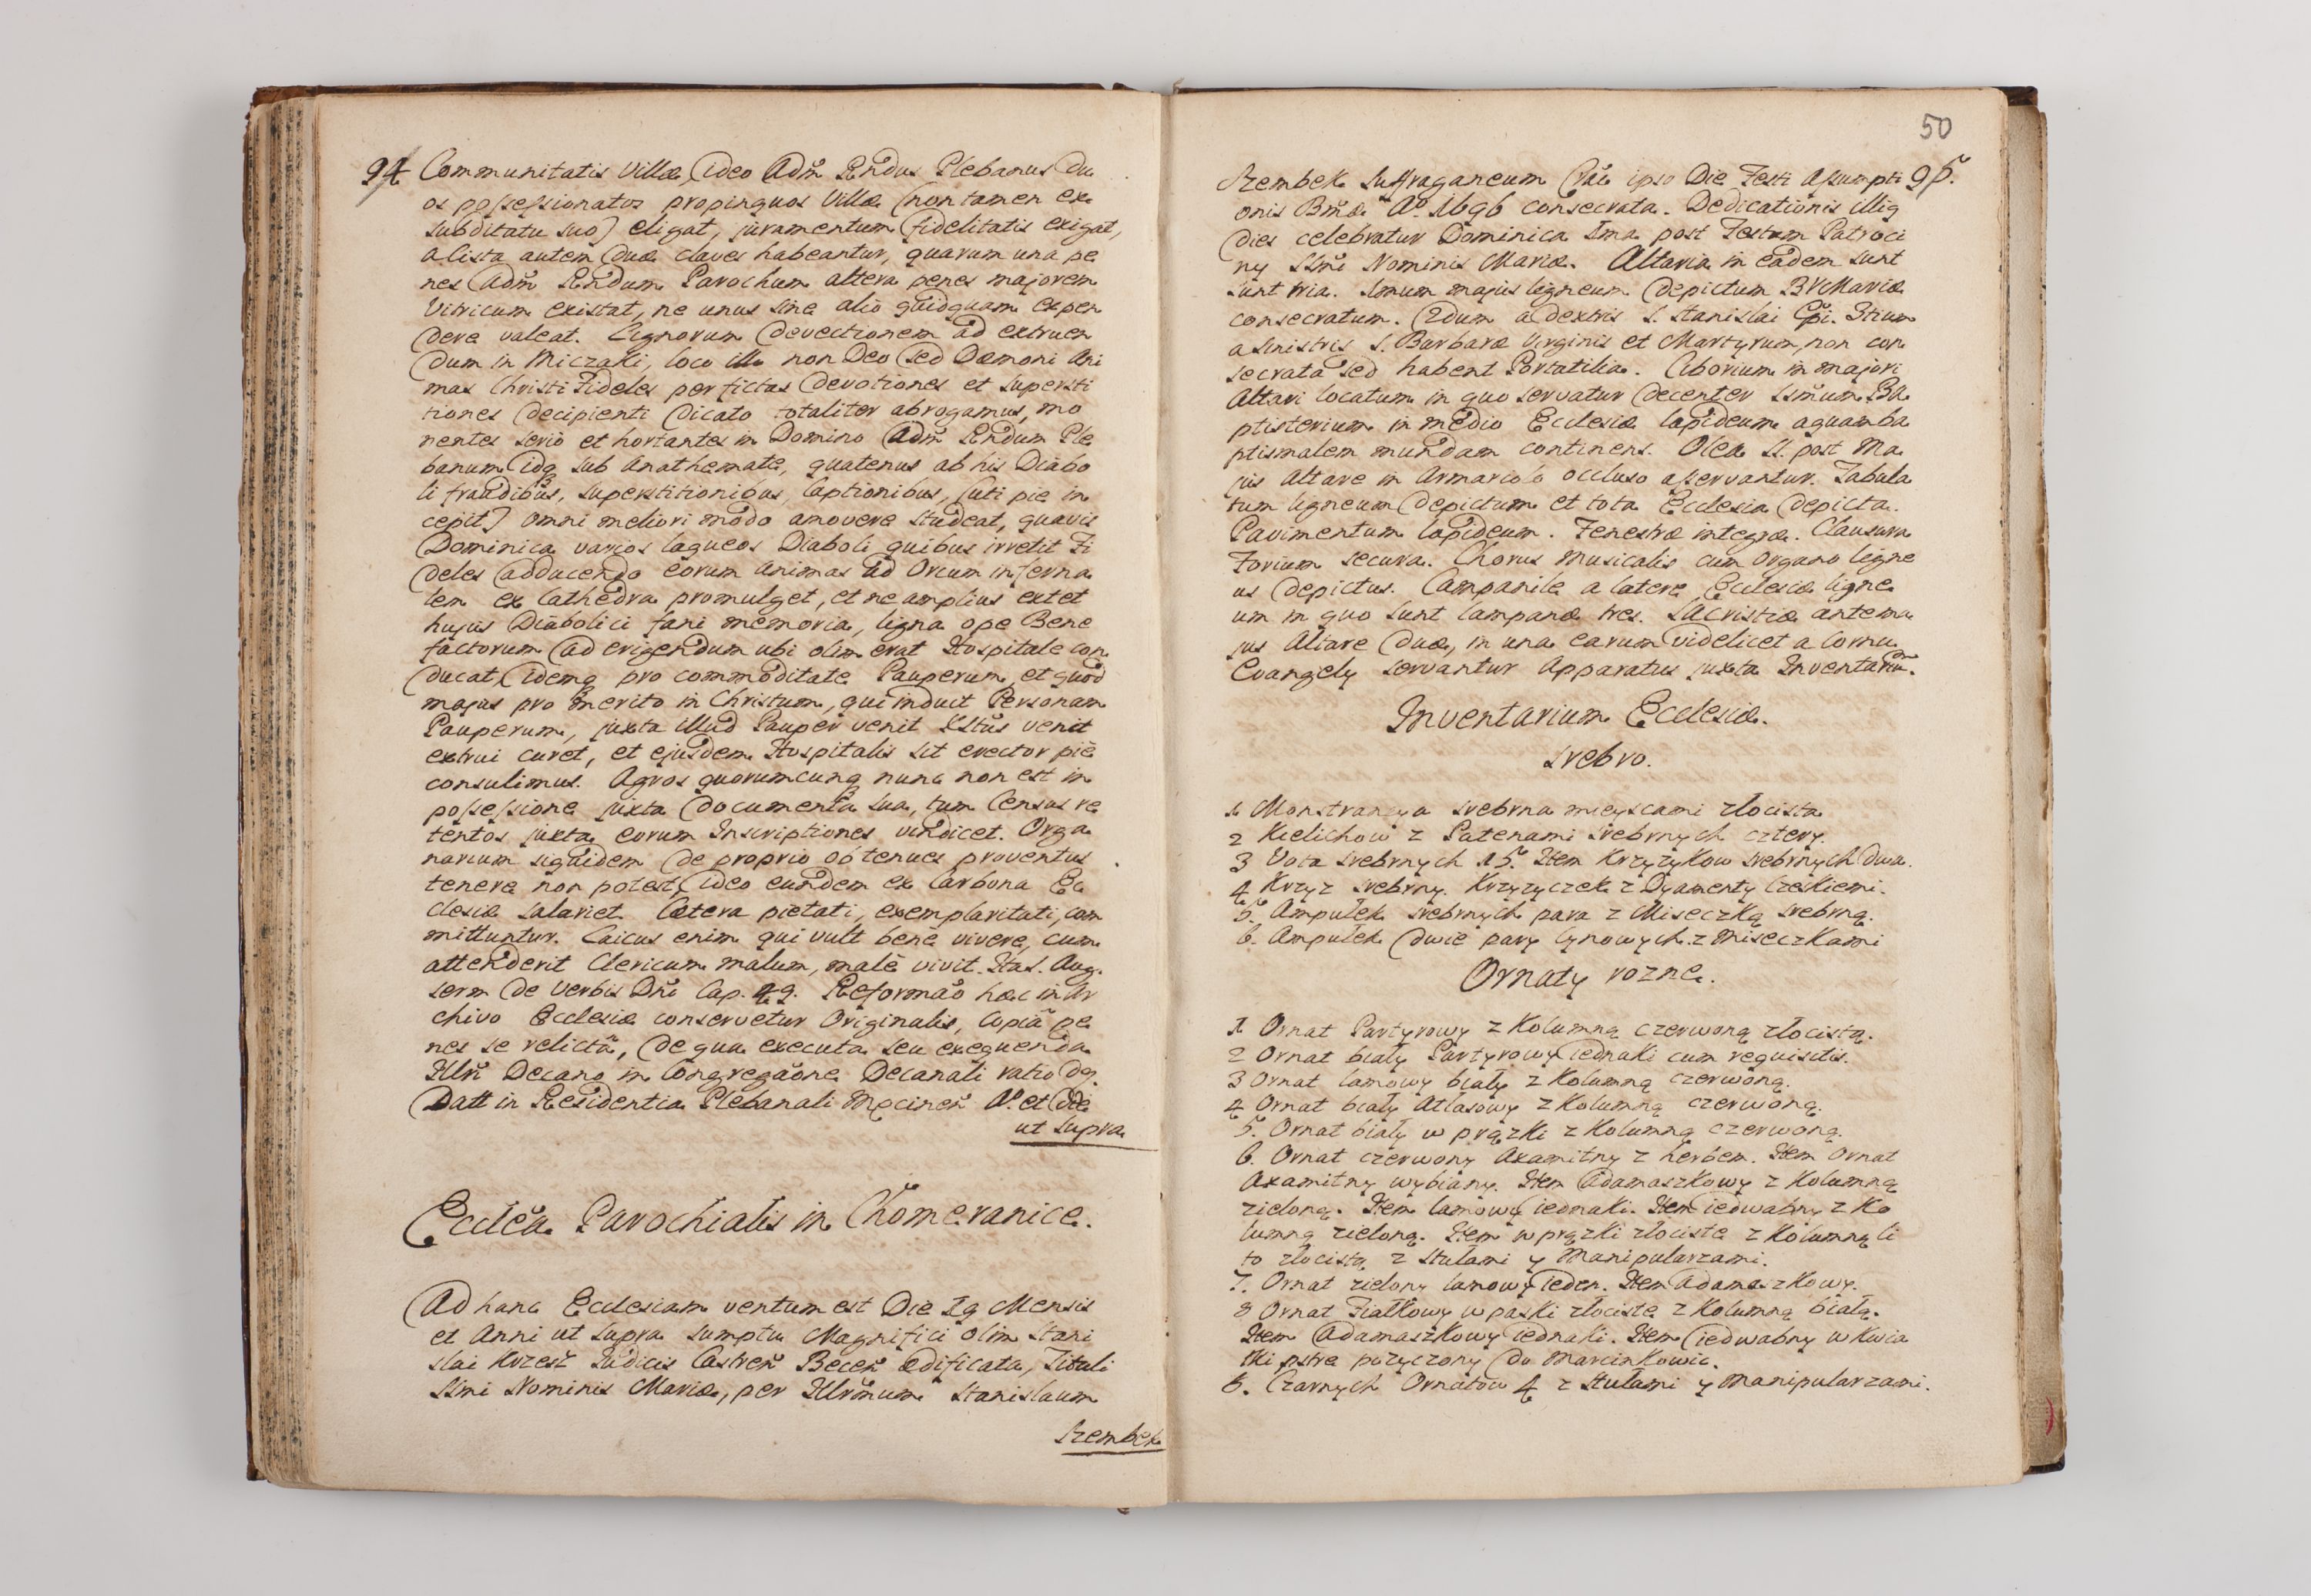 94 Communitatis Villæ, ideo Adm̃ Rñdus Plebanus du
os possessionatos propinquos Villæ (non tamen ex
subditatu suo) eligat, juramentum fidelitatis exigat,
a Cista autem duæ claves habeantur, quarum una pe
nes Adm̃ Rñdum Parochum altera penes majorem
Vitricum existat, ne unus sine alio quidquam expen
dere valeat. Lignorum devectionem ad extruen
dum in Miczaki, loco illo non Deo sed Dæmoni Ani
mas Christi Fideles per fictas devotiones et supersti
tiones decipienti dicato totaliter abrogamus, mo
nentes serio et hortantes in Domino Adm̃ Rñdum Ple
banum idq sub Anathemate, quatenus ab his Diabo
li fraudibus, superstitionibus, captionibus, (uti pie in
cepit) omni meliori modo amovere studeat, quavis
Dominica varios laqueos Diaboli quibus irretit Fi
deles adducendo eorum animas ad Orcum inferna
lem ex Cathedra promulget, et ne amplius extet
hujus Diabolici fani memoria, ligna ope Bene
factorum ad erigendum ubi olim erat Hospitale con
ducat, idemq pro commoditate Pauperum, et quod
majus pro merito in Christum, qui induit Personam
Pauperum, juxta illud Pauper venit Xstus venit
extrui curet, et ejusdem Hospitalis sit erector piè
consulimus. Agros quorumcunq nunc non est in
possessione juxta documenta sua, tum Census re
tentos juxta eorum Inscriptiones vindicet. Orga
narium siquidem de proprio ob tenues proventus
tenere non potest, ideo eundem ex Carbona Ec
clesiæ salariet. Cætera pietati, exemplaritati, com
mittuntur. Laicus enim qui vult benè vivere, cum
attenderit Clericum malum, malè vivit. Ita S. Aug.
serm de verbis Dñi Cap. 49. Reformaõ hæc in Ar
chivo Ecclesiæ conservetur Originalis, Copiã pe
nes se relictã, de qua executa seu exequenda
Illr̃i Decano in Congregaõne Decanali ratio dq.
Datt in Residentia Plebanali Męcineñ A° et die
ut supra
Eccleã Parochialis in Chomeranice.
Ad hanc Ecclesiam ventum est Die 29 Mensis
et Anni ut supra sumptu Magnifici olim Stani
slai Krzesz Judicis Castreñ Beceñ ædificata, Tituli
SSmi Nominis Mariæ, per Illr̃mum Stanislaum
Szembek
50
Szembek Suffraganeum Crac̃ ipso Die Festi Assumpti 95.
onis Bmæ A° 1696 consecrata. Dedicationis illiq
dies celebratur Dominica 1ma post Festum Patroci
ny SSmi Nominis Mariæ. Altaria in eadem sunt
sunt tria. 1mum majus ligneum depictum BVMariæ
consecratum. 2dum a dextris S. Stanislai Epĩ. 3tium
a sinistris S. Barbaræ Virginis et Martyrum, non con
secrata sed habent Portatilia. Ciborium in majori
Altari locatum in quo servatur decenter SSmum. Ba
ptisterium in medio Ecclesiæ lapideum aquam ba
ptismalem mundam continens. Olea S. post Ma
jus Altare in Armariolo occluso asservantur. Tabula
tum ligneum depictum et tota Ecclesia depicta.
Pavimentum lapideum. Fenestræ integræ. Clausura
Forium secura. Chorus musicalis cum Organo ligne
us depictus. Campanile a latere Ecclesiæ ligne
um in quo sunt Campanæ tres. Sacristiæ ante ma
jus Altare duæ, in una earum videlicet a Cornu
Evangely servantur Apparatus juxta Inventariũ.
Inventarium Ecclesiæ.
Srebro.
1 Monstrancya srebrna mieyscami złocista
2 Kielichow z Patenami srebrnych cztery.
3 Vota srebrnych 15. Item Krzyzykow srebrnych dwa.
4 Krzyz srebrny. Krzyzyczek z Dyamenty Czeskiemi.
5. Ampułek srebrnych para z Miseczką srebrną.
6. Ampułek dwie pary cynowych z miseczkami
Ornaty rozne.
1 Ornat Partyrowy z Kolumną czerwoną złocistą.
2 Ornat biały Partyrowy iednaki cum requisitis.
3 Ornat lamowy biały z Kolumną czerwoną.
4 Ornat biały Atlasowy z Kolumną czerwoną.
5. Ornat biały w prązki z Kolumną czerwoną.
6. Ornat czerwony Axamitny z herbem. Item Ornat
Axamitny wybiany. Item Adamaszkowy z Kolumną
zieloną. Item lamowy iednaki. Item iedwabny z Ko
lumną zieloną. Item w prązki złociste z Kolumną li
to złocistą z stułami y Manipularzami.
7. Ornat zielony lamowy ieden. Item Adamaszkowy.
8 Ornat Fiałkowy w paski złociste z Kolumną białą.
Item Adamaszkowy iednaki. Item iedwabny w Kwia
tki pstre pozyczony do Marcinkowic.
6. Czarnych Ornatow 4 z Stułami y Manipularzami.